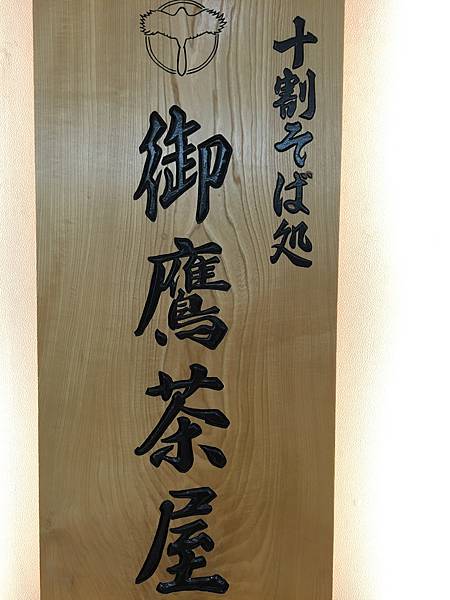 十割そば処
御鷹茶屋